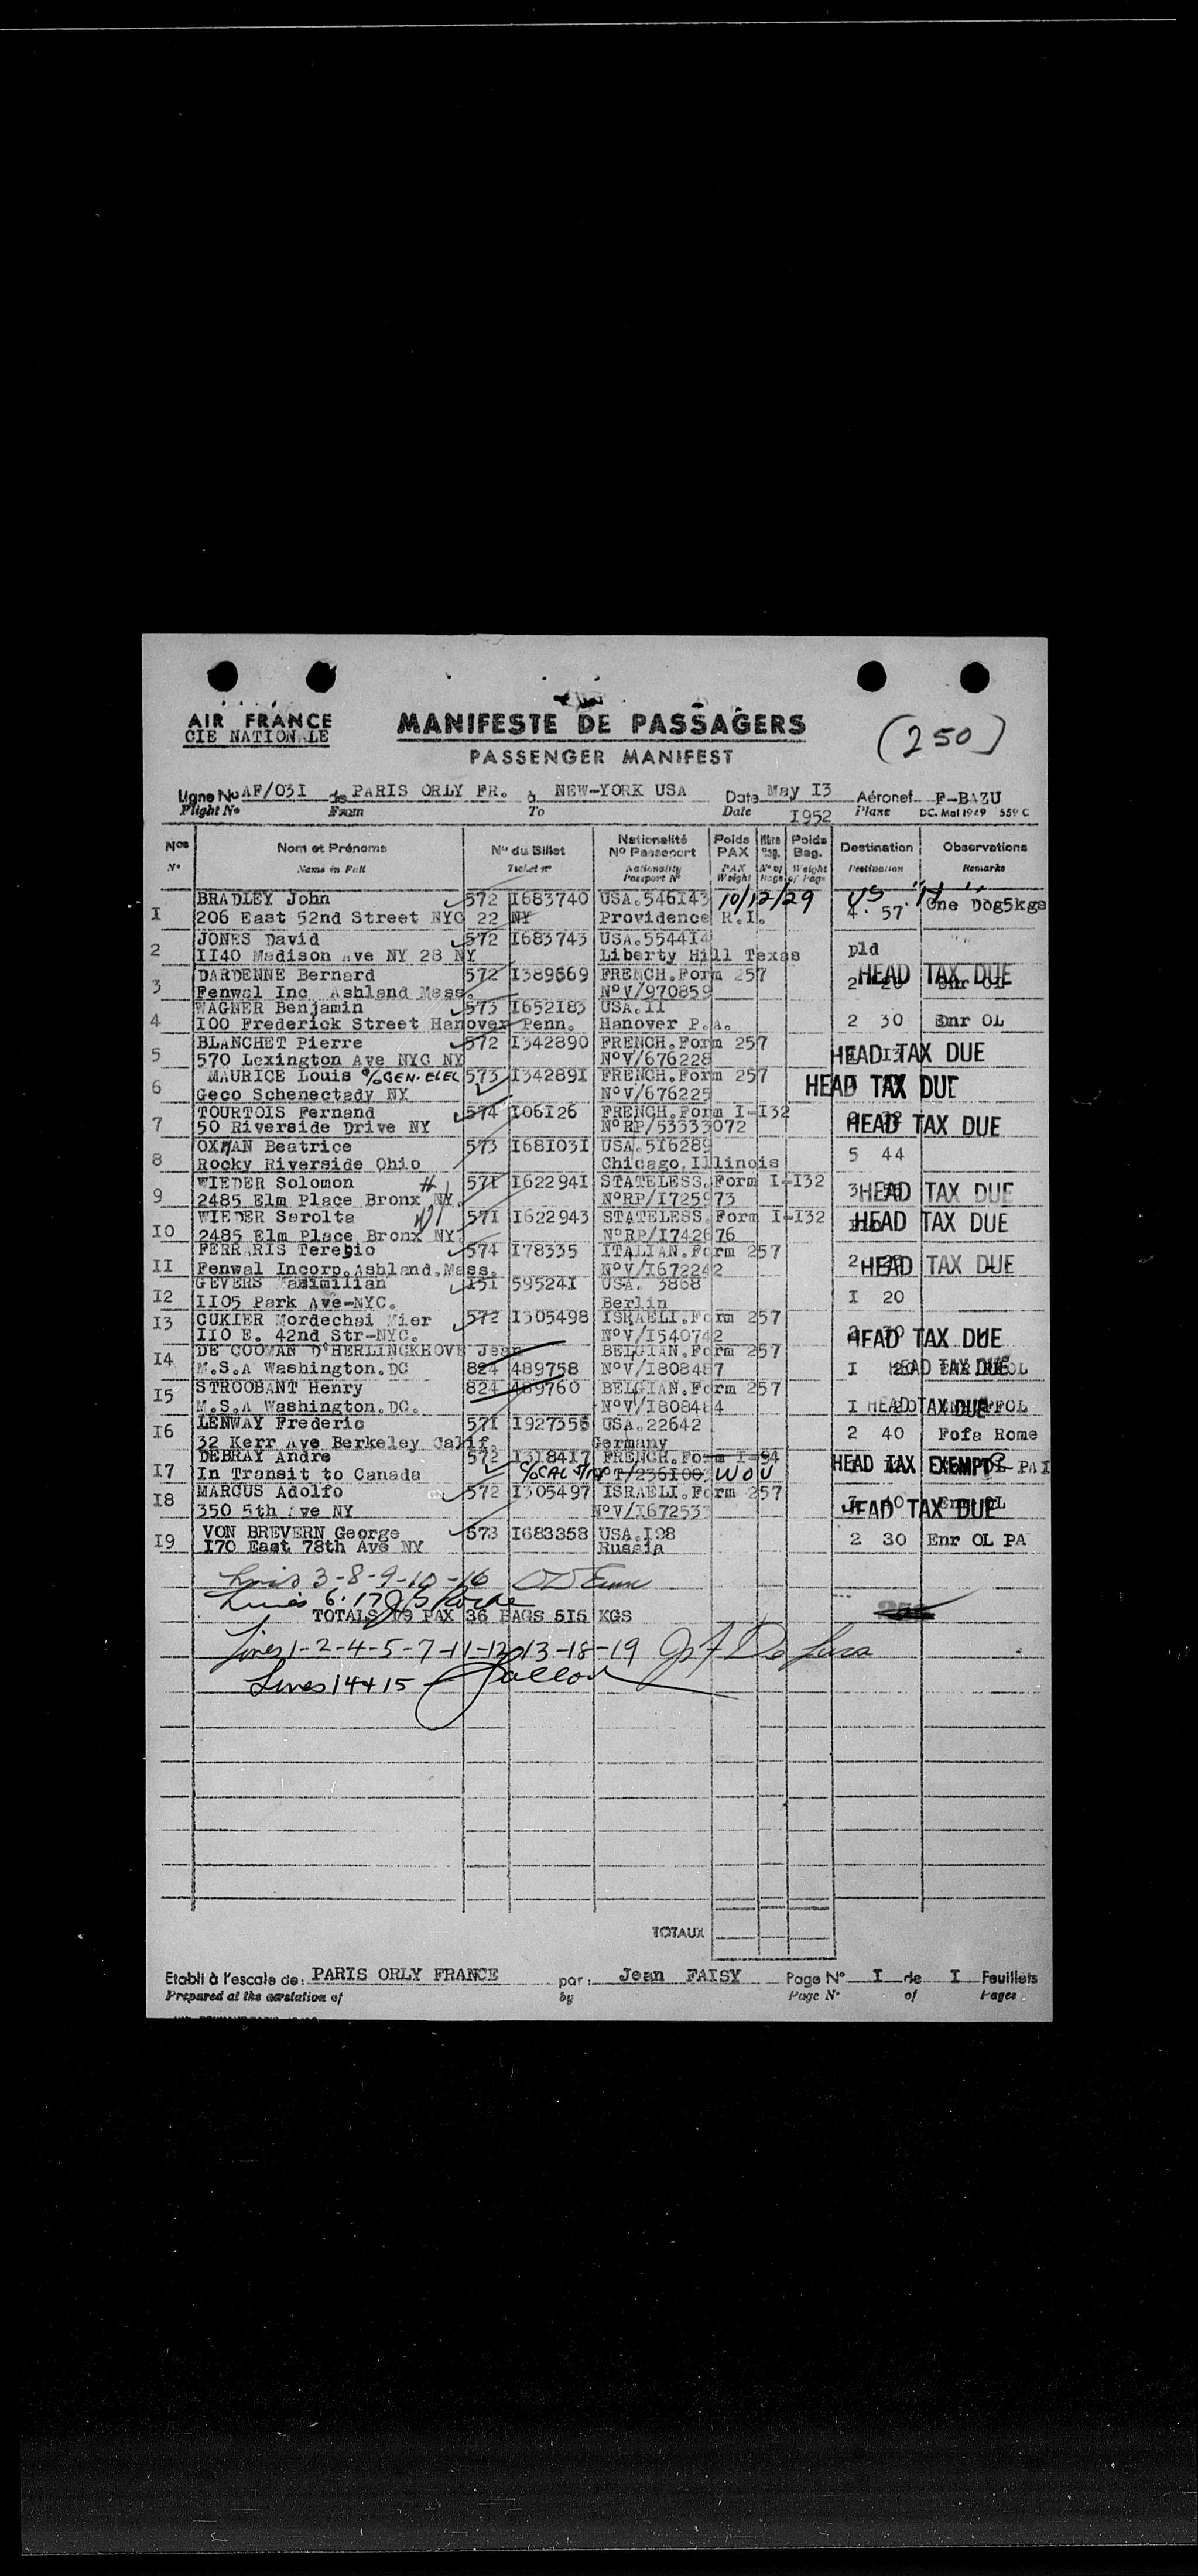 AIR FRANCE
CIE NATIONALE
MANIFESTE DE PASSAGERS
PASSENGER MANIFEST
(250)
Ligne No AF/03I de PARIS ORLY FR. à NEW-YORK USA Date May I3 Aéronef F-BAZU
Flight No From To Date I952 Plane DC. Mai 1949 559 C
Nos Nom et Prénoms No du Billet Nationalité No Passeport Poids PAX Nbre Bag. Poids Bag. Destination Observations
No Name in Full Ticket no Nationality Passport No PAX Weight No of Bags Weight of Bags Destination Remarks
I BRADLEY John 572 I683740 USA.546I43 10/12/29 US "H"
206 East 52nd Street NYC 22 NY Providence R.I. 4. 57 One Dog5kgs
2 JONES David 572 I683743 USA.5544I4
II40 Madison Ave NY 28 NY Liberty Hill Texas pld
3 DARDENNE Bernard 572 I389669 FRENCH.Form 257 HEAD TAX DUE
Fenwal Inc Ashland Mass. NoV/970859 2 Enr OL
4 WAGNER Benjamin 573 I652I83 USA.II
I00 Frederick Street Hanover Penn. Hanover P.A. 2 30 Enr OL
5 BLANCHET Pierre 572 I342890 FRENCH.Form 257 HEAD TAX DUE
570 Lexington Ave NYC NY NoV/676228
6 MAURICE Louis c/o GEN. ELEC 573 I34289I FRENCH.Form 257 HEAD TAX DUE
Geco Schenectady NY NoV/676225
7 TOURTOIS Fernand 574 I06I26 FRENCH.Form I-I32 HEAD TAX DUE
50 Riverside Drive NY NoRP/53333072
8 OXMAN Beatrice 573 I68I03I USA.5I6289
Rocky Riverside Ohio Chicago.Illinois 5 44
9 WIEDER Solomon 57I I62294I STATELESS.Form I-I32 3 HEAD TAX DUE
2485 Elm Place Bronx NY. NoRP/I725973
I0 WIEDER Serolta 57I I622943 STATELESS.Form I-I32 HEAD TAX DUE
2485 Elm Place Bronx NY. NoRP/I742676
II FERRARIS Terebio 574 I78335 ITALIAN.Form 257 2 HEAD TAX DUE
Fenwal Incorp.Ashland.Mass. NoV/I672242
I2 GEVERS Maximilian I5I 59524I USA. 3868
II05 Park Ave-NYC. Berlin I 20
I3 CUKIER Mordechai Mier 572 I305498 ISRAELI.Form 257
II0 E. 42nd Str-NYC. NoV/I540742 HEAD TAX DUE
I4 DE COOMAN D'HERLINCKHOVE Jean BELGIAN.Form 257
M.S.A Washington.DC 824 489758 NoV/I808487 I HEAD TAX DUE
I5 STROOBANT Henry 824 489760 BELGIAN.Form 257
M.S.A Washington.DC. NoV/I808484 I HEAD TAX DUE
I6 LENWAY Frederic 57I I927355 USA.22642
32 Kerr Ave Berkeley Calif. Germany 2 40 Fofa Rome
I7 DEBRAY Andre 572 I3I84I7 FRENCH.Form I-94 HEAD TAX EXEMPT
In Transit to Canada NoT/236I00 WOV
I8 MARCUS Adolfo 572 I305497 ISRAELI.Form 257
350 5th Ave NY NoV/I672533 HEAD TAX DUE
I9 VON BREVERN George 573 I683358 USA.I98
I70 East 78th Ave NY Russia 2 30 Enr OL PA
Lines 3-8-9-10-16
Lines 6-17
TOTALS I9 PAX 36 BAGS 5I5 KGS
Lines 1-2-4-5-7-11-12-13-18-19
Lines 14+15
TOTAUX
Etabli à l'escale de: PARIS ORLY FRANCE par: Jean FAISY Page No I de I Feuillets
Prepared at the aerstation of by Page No of Pages